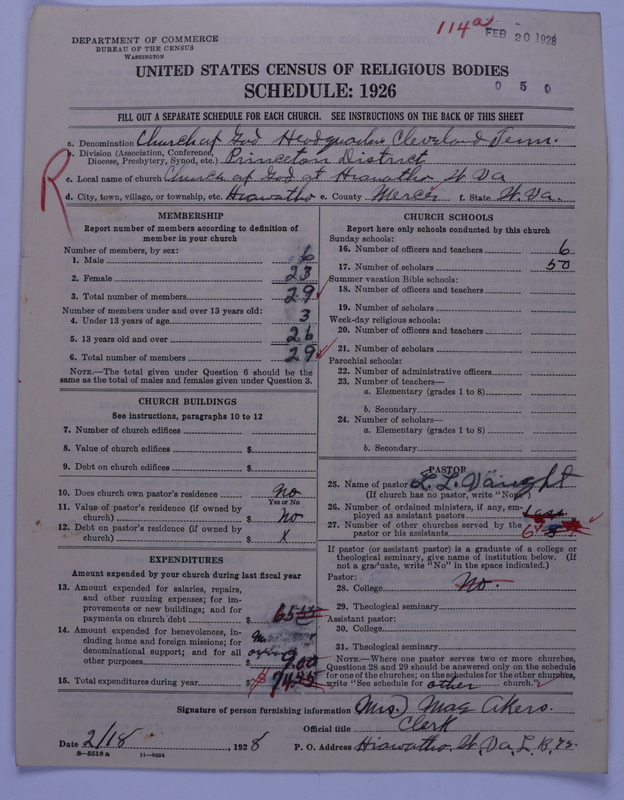 114a
FEB 20 1928
DEPARTMENT OF COMMERCE
BUREAU OF THE CENSUS
WASHINGTON
UNITED STATES CENSUS OF RELIGIOUS BODIES
SCHEDULE: 1926
0 5 0
FILL OUT A SEPARATE SCHEDULE FOR EACH CHURCH. SEE INSTRUCTIONS ON THE BACK OF THIS SHEET
R
a. Denomination Church of God Headquarters Cleveland Tenn.
b. Division (Association, Conference, Diocese, Presbytery, Synod, etc.) Princeton District
c. Local name of church Church of God at Hiawatha W. Va
d. City, town, village, or township, etc. Hiawatha e. County Mercer f. State W. Va.
MEMBERSHIP
Report number of members according to definition of
member in your church
Number of members, by sex:
1. Male 6
2. Female 23
3. Total number of members 29
Number of members under and over 13 years old:
4. Under 13 years of age 3
5. 13 years old and over 26
6. Total number of members 29
NOTE.—The total given under Question 6 should be
same as the total of males and females given under Question 3.
CHURCH BUILDINGS
See instructions, paragraphs 10 to 12
7. Number of church edifices
8. Value of church edifices $
9. Debt on church edifices $
10. Does church own pastor's residence No
Yes or No
11. Value of pastor's residence (if owned by
church) $ No
12. Debt on pastor's residence (if owned by
church) $ X
EXPENDITURES
Amount expended by your church during last fiscal year
13. Amount expended for salaries, repairs,
and other running expenses; for im-
provements or new buildings; and for
payments on church debt $ 65
14. Amount expended for benevolences, in-
cluding home and foreign missions; for
denominational support; and for all
other purposes $ 9.00
15. Total expenditures during year $ 74
CHURCH SCHOOLS
Report here only schools conducted by this church
Sunday schools:
16. Number of officers and teachers 6
17. Number of scholars 50
Summer vacation Bible schools:
18. Number of officers and teachers
19. Number of scholars
Week-day religious schools:
20. Number of officers and teachers
21. Number of scholars
Parochial schools:
22. Number of administrative officers
23. Number of teachers—
a. Elementary (grades 1 to 8)
b. Secondary
24. Number of scholars—
a. Elementary (grades 1 to 8)
b. Secondary
PASTOR
25. Name of pastor L. L. Vaught
(If church has no pastor, write "No"
26. Number of ordained ministers, if any, em-
ployed as assistant pastors
27. Number of other churches served by the
pastor or his assistants 6
If pastor (or assistant pastor) is a graduate of a college or
theological seminary, give name of institution below. (If
not a graduate, write "No" in the space indicated.)
Pastor:
28. College No.
29. Theological seminary
Assistant pastor:
30. College
31. Theological seminary
NOTE.—Where one pastor serves two or more churches,
Questions 28 and 29 should be answered only on the schedule
for one of the churches; on the schedules for the other churches,
write "See schedule for other church."
Signature of person furnishing information (Mrs.) Mag Akers.
Official title Clerk
Date 2/18, 1928 P. O. Address Hiawatha, W, Va,
8—5518 a 11—9354